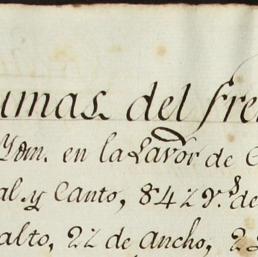 umas del fre
Yom. en la Lavor de C
al. y Canto, 842 v.s de
alto, 22 de ancho, 2